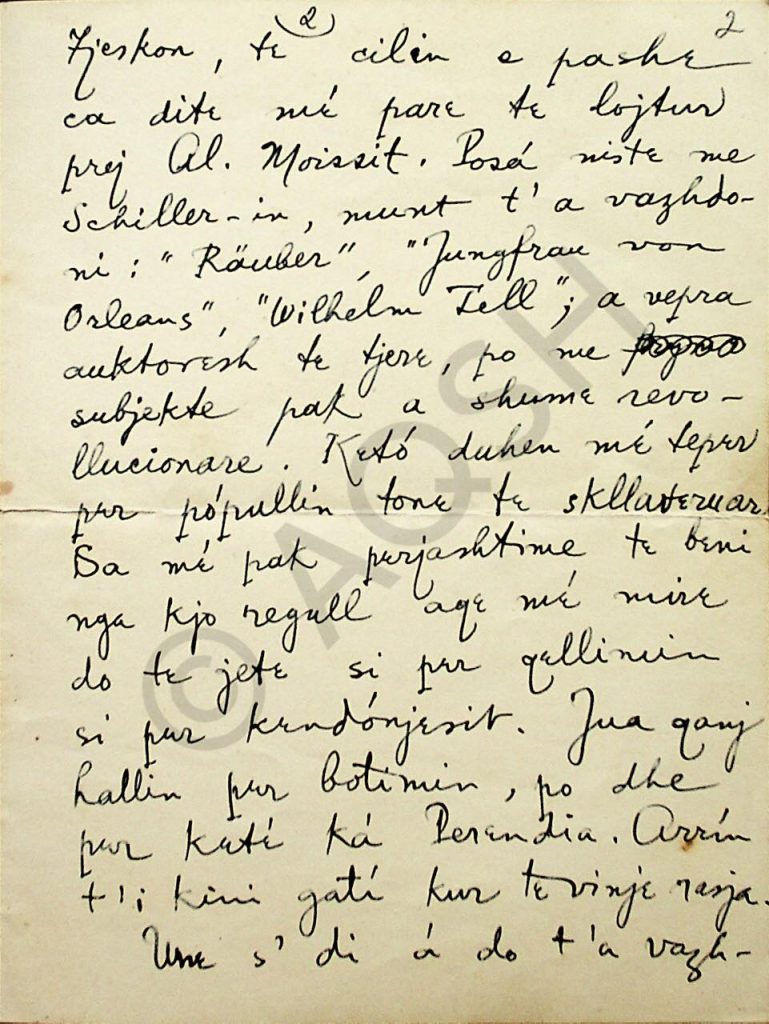 2 2
Fjeskon, te cilin e pashe
ca dite mé pare te lojtur
prej Al. Moissit. Posá niste me
Schiller-in, munt t'a vazhdo-
ni: "Räuber", "Jungfrau von
Orleans", "Wilhelm Tell"; a vepra
auktoresh te tjere, po me
subjekte pak a shume revo-
llucionare. Ketó duhen mé teper
per pópullin tone te skllaveruar.
Sa mé pak perjashtime te beni
nga kjo regull aqe mé mire
do te jete si per qellimin
si per kendónjesit. Jua qanj
hallin per botimin, po dhe
per keté ká Perendia. Arrín
t'i kini gatí kur te vinje rasja.
Une s' di á do t'a vazh-
© AQSH